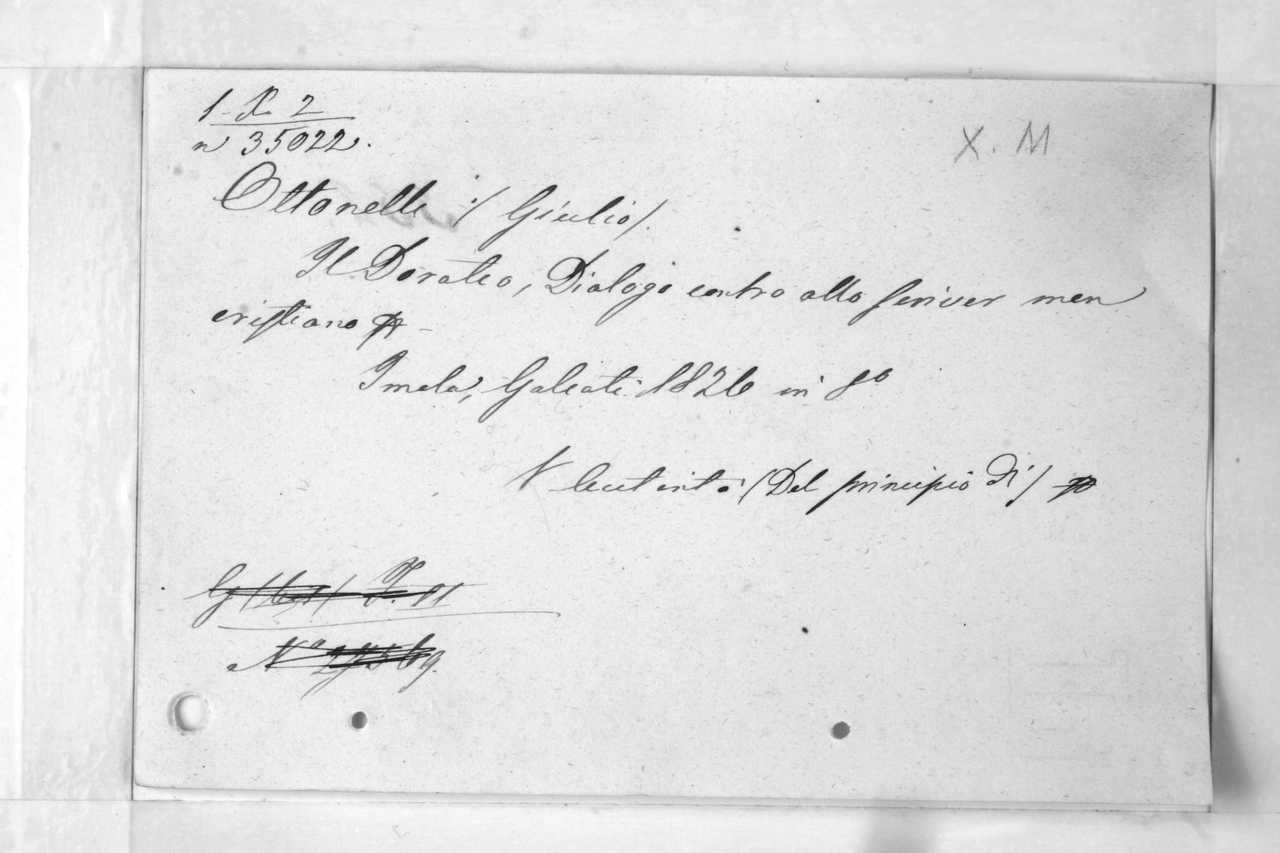 1- X 2
n 35022.
X. M
Ottonelli / Giulio /.
Il Dorateo, Dialogo contro allo scriver men
cristiano
Imola, Galeati 1826 in 8º
V (Del principio di)
Nº